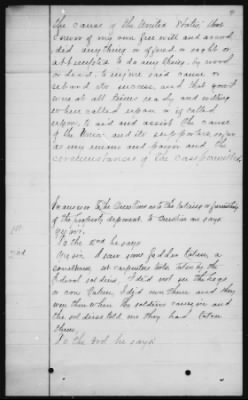 the cause of the United States, that
I never of my own free will and accord
did anything or offered or sought or
attempted to do anything by word
or deed to injure said cause or
retard its success and that I
were at all times ready and willing
when called upon or if called
upon, to aid and assist the cause
of the Union and its supporters, so far
as my means and power and the
circumstances of the case permitted.
In answer to the Questions as to the taking or furnishing
of the property, deponent, to Question as says
1st
To the 2nd he says
2nd
I saw some fodder taken, a
set carpenters tools taken by the
Federal soldiers, I did not see the hogs
or corn taken, I did own them and they
were then when the soldiers came and
the soldiers told me they had taken
them.
To the 3rd he says